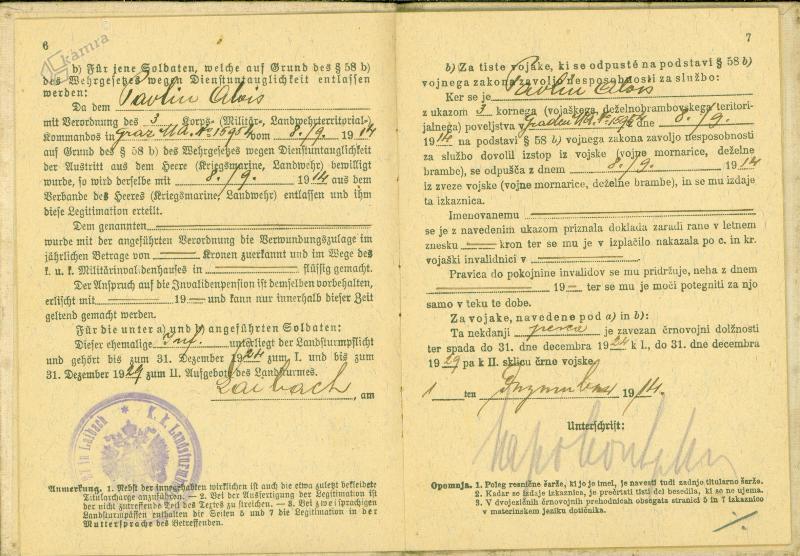 kamra
6
b) Für jene Soldaten, welche auf Grund des § 58 b)
des Wehrgesetzes wegen Dienstuntauglichkeit entlassen
werden:
Da dem Pavlin Alois
mit Verordnung des 3 Korps- (Militär-, Landwehrterritorial-)
Kommandos in Graz M.A. No 15954 vom 8./9. 1914
auf Grund des § 58 b) des Wehrgesetzes wegen Dienstuntauglichkeit
der Austritt aus dem Heere (Kriegsmarine, Landwehr) bewilligt
wurde, so wird derselbe mit 8./9. 1914 aus dem
Verbande des Heeres (Kriegsmarine, Landwehr) entlassen und ihm
diese Legitimation erteilt.
Dem genannten
wurde mit der angeführten Verordnung die Verwundungszulage im
jährlichen Betrage von Kronen zuerkannt und im Wege des
k. u. k. Militärinvalidenhauses in flüssig gemacht.
Der Anspruch auf die Invalidenpension ist demselben vorbehalten,
erlischt mit 19 und kann nur innerhalb dieser Zeit
geltend gemacht werden.
Für die unter a) und b) angeführten Soldaten:
Dieser ehemalige Inf. unterliegt der Landsturmpflicht
und gehört bis zum 31. Dezember 1924 zum I. und bis zum
31. Dezember 1929 zum II. Aufgebote des Landsturmes.
Laibach, am
in Laibach * K. k. Landsturm
Anmerkung. 1. Nebst der innegehabten wirklichen ist auch die etwa zuletzt bekleidete
Titularcharge anzuführen. — 2. Bei der Ausfertigung der Legitimation ist
der nicht zutreffende Teil des Textes zu streichen. — 3. Bei zweisprachigen
Landsturmpässen enthalten die Seiten 5 und 7 die Legitimation in der
Muttersprache des Betreffenden.
7
b) Za tiste vojake, ki se odpusté na podstavi § 58 b)
vojnega zakona zavoljo nesposobnosti za službo:
Ker se je Pavlin Alois
z ukazom 3 kornega (vojaškega, deželnobrambovskega teritori-
jalnega) poveljstva Gradec M.A. No 15954 dne 8./9.
1914 na podstavi § 58 b) vojnega zakona zavoljo nesposobnosti
za službo dovolil izstop iz vojske (vojne mornarice, deželne
brambe), se odpušča z dnem 8./9. 1914
iz zveze vojske (vojne mornarice, deželne brambe), in se mu izdaje
ta izkaznica.
Imenovanemu
se je z navedenim ukazom priznala doklada zaradi rane v letnem
znesku kron ter se mu je v izplačilo nakazala po c. in kr.
vojaški invalidnici v
Pravica do pokojnine invalidov se mu pridržuje, neha z dnem
19 ter se mu je moči potegniti za njo
samo v teku te dobe.
Za vojake, navedene pod a) in b):
Ta nekdanji pešec je zavezan črnovojni dolžnosti
ter spada do 31. dne decembra 1924 k I., do 31. dne decembra
1929 pa k II. sklicu črne vojske.
1 ten Dezember 1914.
Unterschrift:
Opomnja. 1. Poleg resnične šarže, ki jo je imel, je navesti tudi zadnjo titularno šaržo.
2. Kadar se izdaje izkaznica, je prečrtati tisti del besedila, ki se ne ujema.
3. V dvojezičnih črnovojnih prehodnicah obsegata stranici 5 in 7 izkaznico
v materinskem jeziku dotičnika.